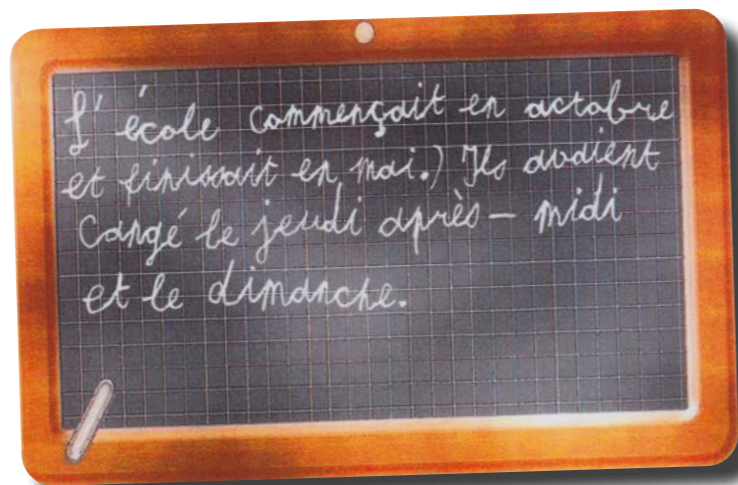 L'école commençait en octobre
et finissait en mai.) Ils avaient
congé le jeudi après-midi
et le dimanche.